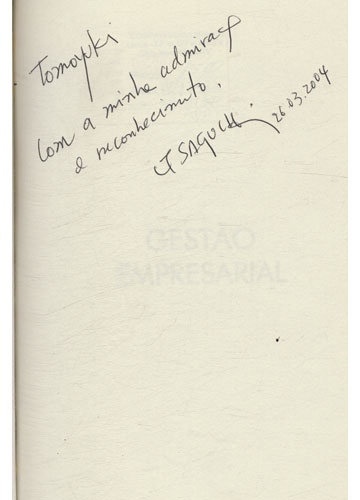 Tomoyuki
Com a minha admiração
e reconhecimento.
J SAGUCHI. 26.03.2004
GESTÃO
EMPRESARIAL